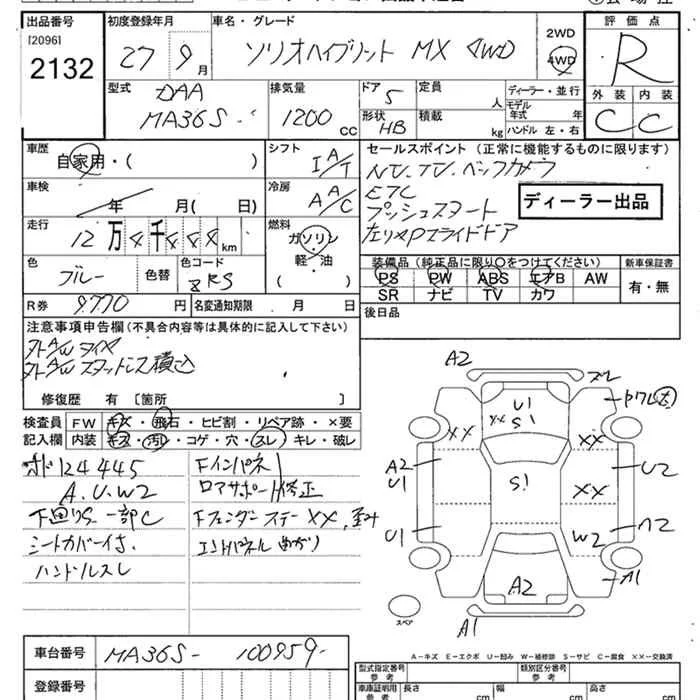 出品番号 初度登録年月 車名・グレード 評価点
[2096] 2132 27年9月 ソリオハイブリット MX 4WD 2WD 4WD R
外装 内装
C C
型式 DAA MA36S 排気量 1200cc ドア 5 定員 人 ディーラー・並行
モデル年式 年
形状 HB 積載 kg ハンドル 左・右
車歴 自家用・( ) シフト I A/T セールスポイント(正常に機能するものに限ります)
NV.TV.バックカメラ
ETC
プッシュスタート
ディーラー出品
車検 年 月( 日) 冷房 A A/C
走行 12万4千448km 燃料 ガソリン・軽・油( )
色 ブルー 色替 色コード ZRS
装備品(純正品に限り○をつけてください) 新車保証書
PS PW ABS エアB AW 有・無
SR ナビ TV カワ
R券 9.770円 名変通知期限 月 日
後日品
注意事項申告欄(不具合内容等は具体的に記入して下さい)
外AWタイヤ
外AWスタッドレス積込
修復歴 有 [箇所 ]
検査員記入欄 FW キズ・飛石・ヒビ割・リペア跡・×要
内装 キズ・汚レ・コゲ・穴・スレ・キレ・破レ
124445 Fインパネ
A.U.W2 ロアサポート修正
下回りS 一部C Fフェンダーステー××,歪み
シートカバー付. エンドパネル
ハンドルスレ
A2
U1
S1
×× ××
A2
U1
S1
U2
××
U1
W2
A2
A1
A2
A1
スペア
A-キズ E-エクボ U-凹み W-補修跡 S-サビ C-腐食 ××-交換済
車台番号 MA36S- 100959-
登録番号
型式指定番号 参考 類別区分番号 参考
車庫証明用 参考 長さ cm 幅 cm 高さ cm